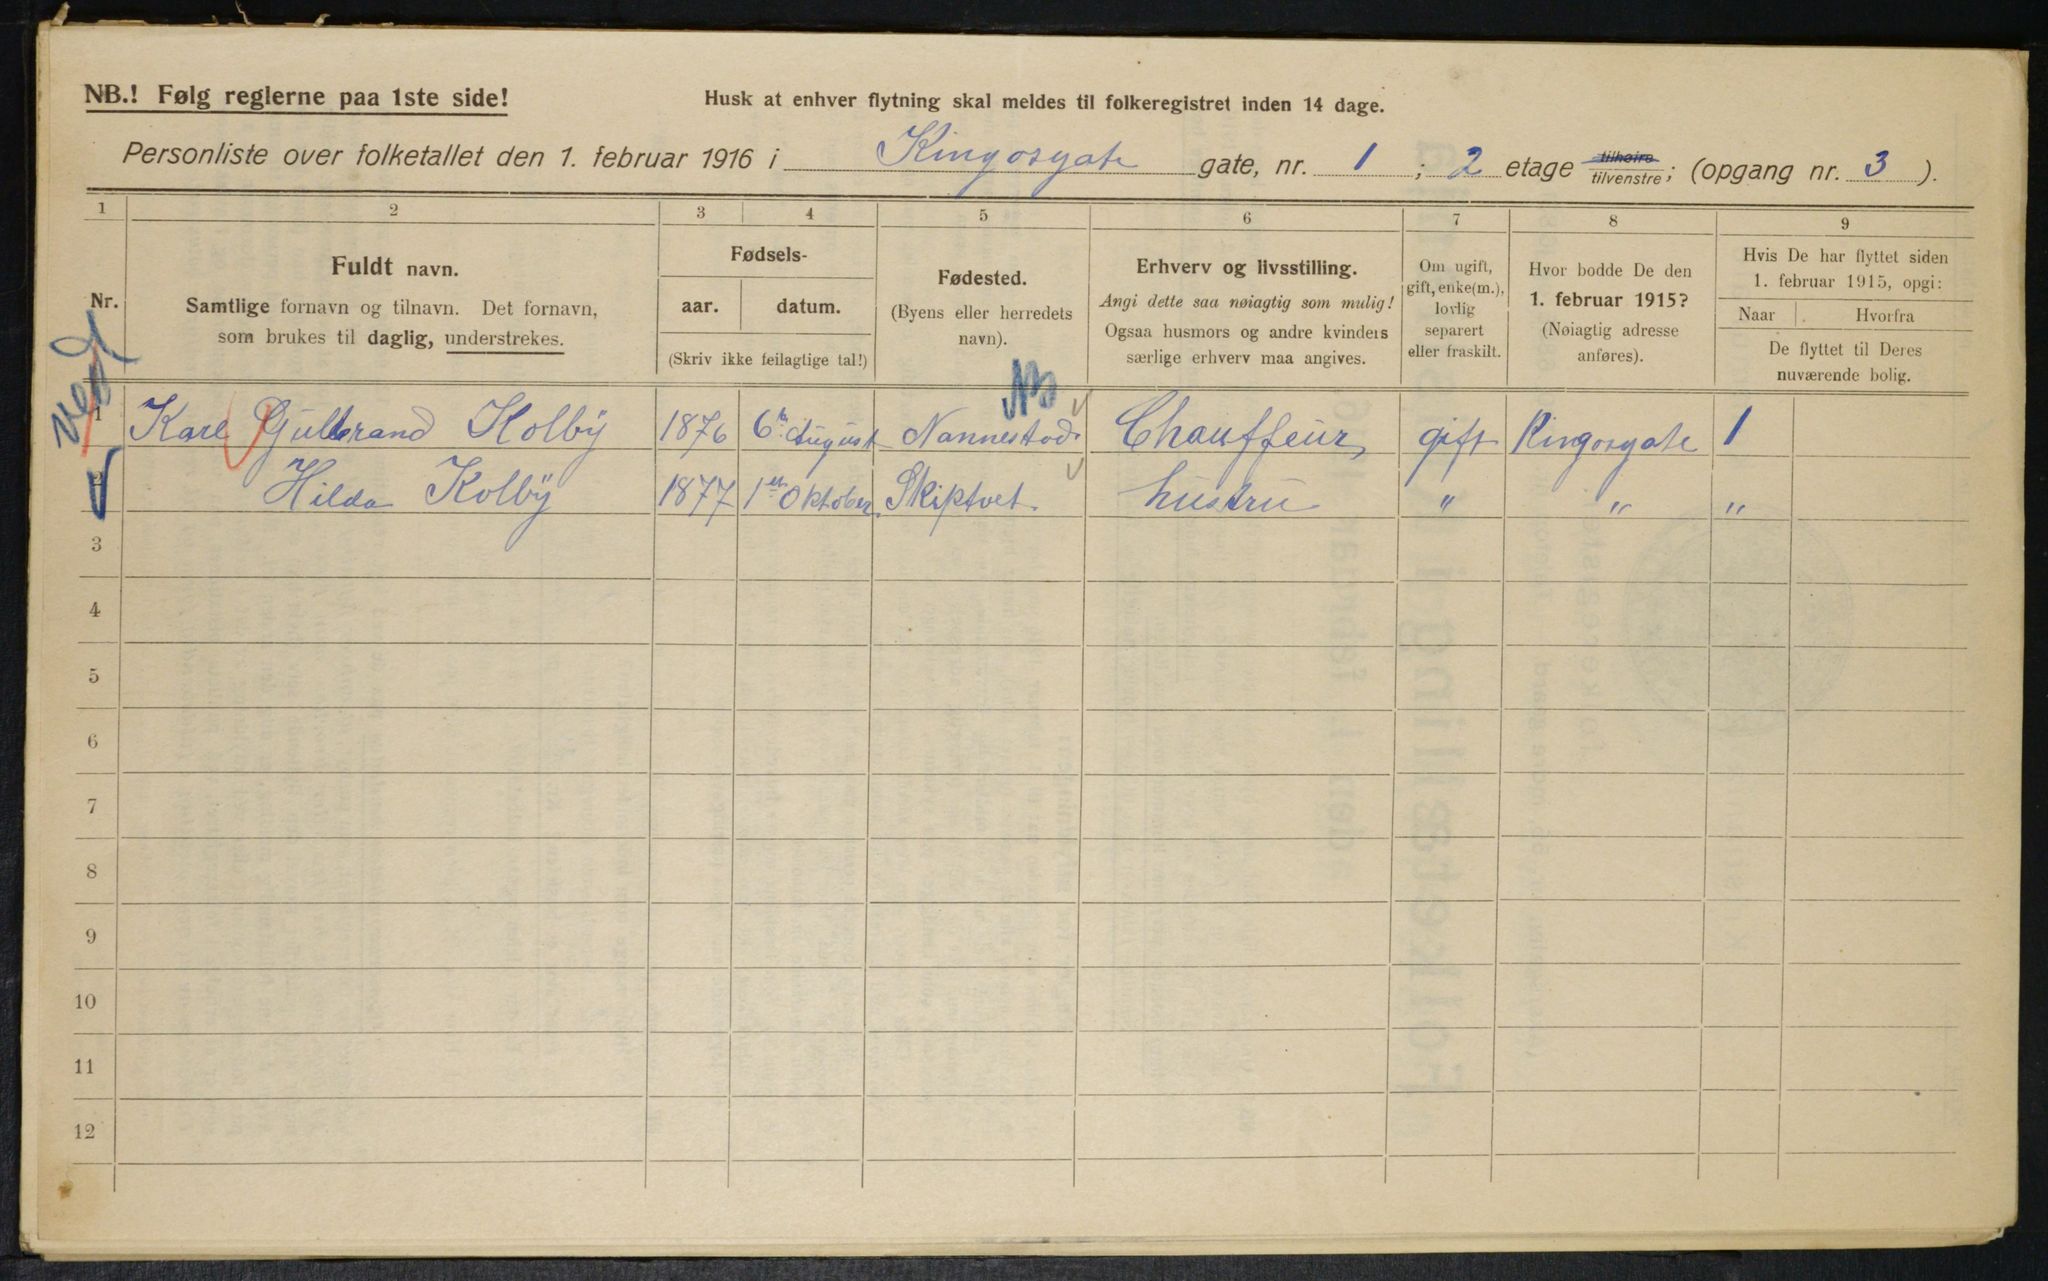 NB.! Følg reglerne paa 1ste side!
Husk at enhver flytning skal meldes til folkeregistret inden 14 dage.
Personliste over folketallet den 1. februar 1916 i Kingosgate gate, nr. 1 ; 2 etage tilhøire tilvenstre; (opgang nr. 3 ).
1 2 3 4 5 6 7 8 9
Nr.
Fuldt navn.
Samtlige fornavn og tilnavn. Det fornavn,
som brukes til daglig, understrekes.
Fødsels-
aar. datum.
(Skriv ikke feilagtige tal!)
Fødested.
(Byens eller herredets
navn).
Erhverv og livsstilling.
Angi dette saa nøiagtig som mulig!
Ogsaa husmors og andre kvinders
særlige erhverv maa angives.
Om ugift,
gift, enke(m.),
lovlig
separert
eller fraskilt.
Hvor bodde De den
1. februar 1915?
(Nøiagtig adresse
anføres).
Hvis De har flyttet siden
1. februar 1915, opgi:
Naar Hvorfra
De flyttet til Deres
nuværende bolig.
NB
1 Karl Gulbrand Kolby 1876 6te August Nannestad Chauffeur gift Kingosgate 1
2 Hilda Kolby 1877 1st Oktober Skiptvet hustru " " "
3
4
5
6
7
8
9
10
11
12